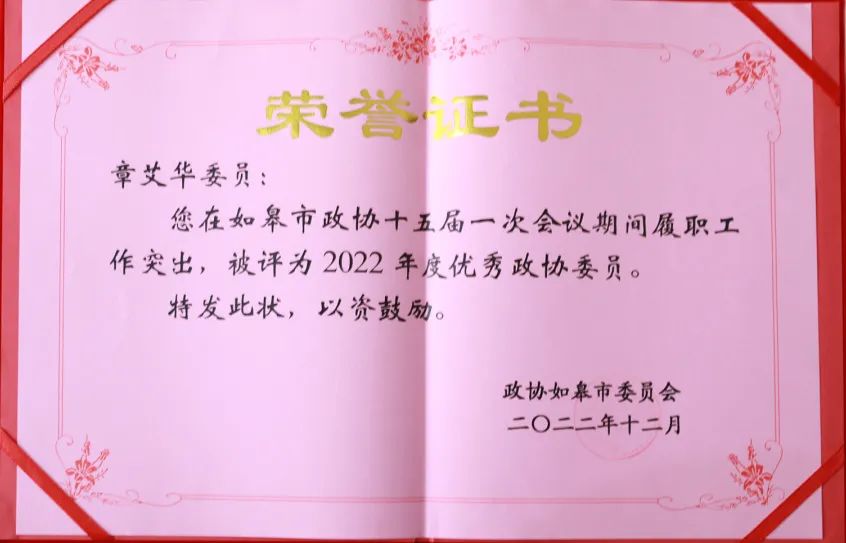 荣誉证书
章艾华委员：
您在如皋市政协十五届一次会议期间履职工
作突出，被评为 2022 年度优秀政协委员。
特发此状，以资鼓励。
政协如皋市委员会
二〇二二年十二月